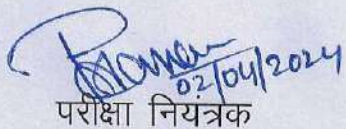 02/04/2024
परीक्षा नियंत्रक